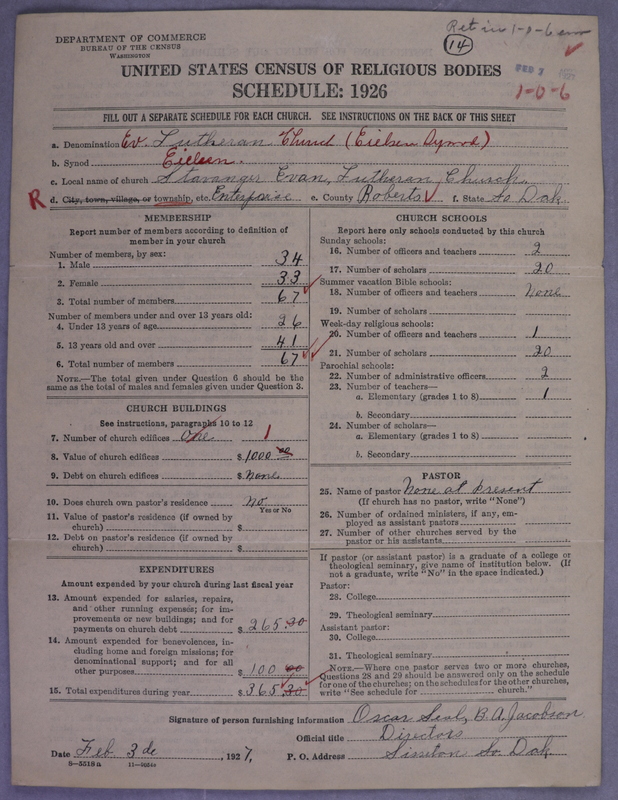 Ret in 1-0-6
14
DEPARTMENT OF COMMERCE
BUREAU OF THE CENSUS
WASHINGTON
FEB 7
1-0-6
UNITED STATES CENSUS OF RELIGIOUS BODIES
SCHEDULE: 1926
FILL OUT A SEPARATE SCHEDULE FOR EACH CHURCH. SEE INSTRUCTIONS ON THE BACK OF THIS SHEET
a. Denomination Ev. Lutheran Church (Eielsen Synod)
b. Synod Eielsen.
c. Local name of church Stavanger Evan. Lutheran Church
R d. City, town, village, or township, etc. Enterprise e. County Roberts f. State So Dak.
MEMBERSHIP
Report number of members according to definition of
member in your church
Number of members, by sex:
1. Male 34
2. Female 33
3. Total number of members 67
Number of members under and over 13 years old:
4. Under 13 years of age 26
5. 13 years old and over 41
6. Total number of members 67
NOTE.—The total given under Question 6 should be the
same as the total of males and females given under Question 3.
CHURCH BUILDINGS
See instructions, paragraphs 10 to 12
7. Number of church edifices One 1
8. Value of church edifices $ 1000 00
9. Debt on church edifices $ None
10. Does church own pastor's residence No
Yes or No
11. Value of pastor's residence (if owned by
church) $
12. Debt on pastor's residence (if owned by
church) $
EXPENDITURES
Amount expended by your church during last fiscal year
13. Amount expended for salaries, repairs,
and other running expenses; for im-
provements or new buildings; and for
payments on church debt $ 265.30
14. Amount expended for benevolences, in-
cluding home and foreign missions; for
denominational support; and for all
other purposes $ 100 00
15. Total expenditures during year $ 365.30
CHURCH SCHOOLS
Report here only schools conducted by this church
Sunday schools:
16. Number of officers and teachers 2
17. Number of scholars 20
Summer vacation Bible schools:
18. Number of officers and teachers None
19. Number of scholars
Week-day religious schools:
20. Number of officers and teachers 1
21. Number of scholars 20
Parochial schools:
22. Number of administrative officers 2
23. Number of teachers—
a. Elementary (grades 1 to 8) 1
b. Secondary
24. Number of scholars—
a. Elementary (grades 1 to 8)
b. Secondary
PASTOR
25. Name of pastor None at present
(If church has no pastor, write "None")
26. Number of ordained ministers, if any, em-
ployed as assistant pastors
27. Number of other churches served by the
pastor or his assistants
If pastor (or assistant pastor) is a graduate of a college or
theological seminary, give name of institution below. (If
not a graduate, write "No" in the space indicated.)
Pastor:
28. College
29. Theological seminary
Assistant pastor:
30. College
31. Theological seminary
NOTE.—Where one pastor serves two or more churches,
Questions 28 and 29 should be answered only on the schedule
for one of the churches; on the schedules for the other churches,
write "See schedule for church."
Signature of person furnishing information Oscar B. A. Jacobson
Official title Directors
Date Feb. 3 de, 1927, P. O. Address Sisseton So Dak.
8—5518 a